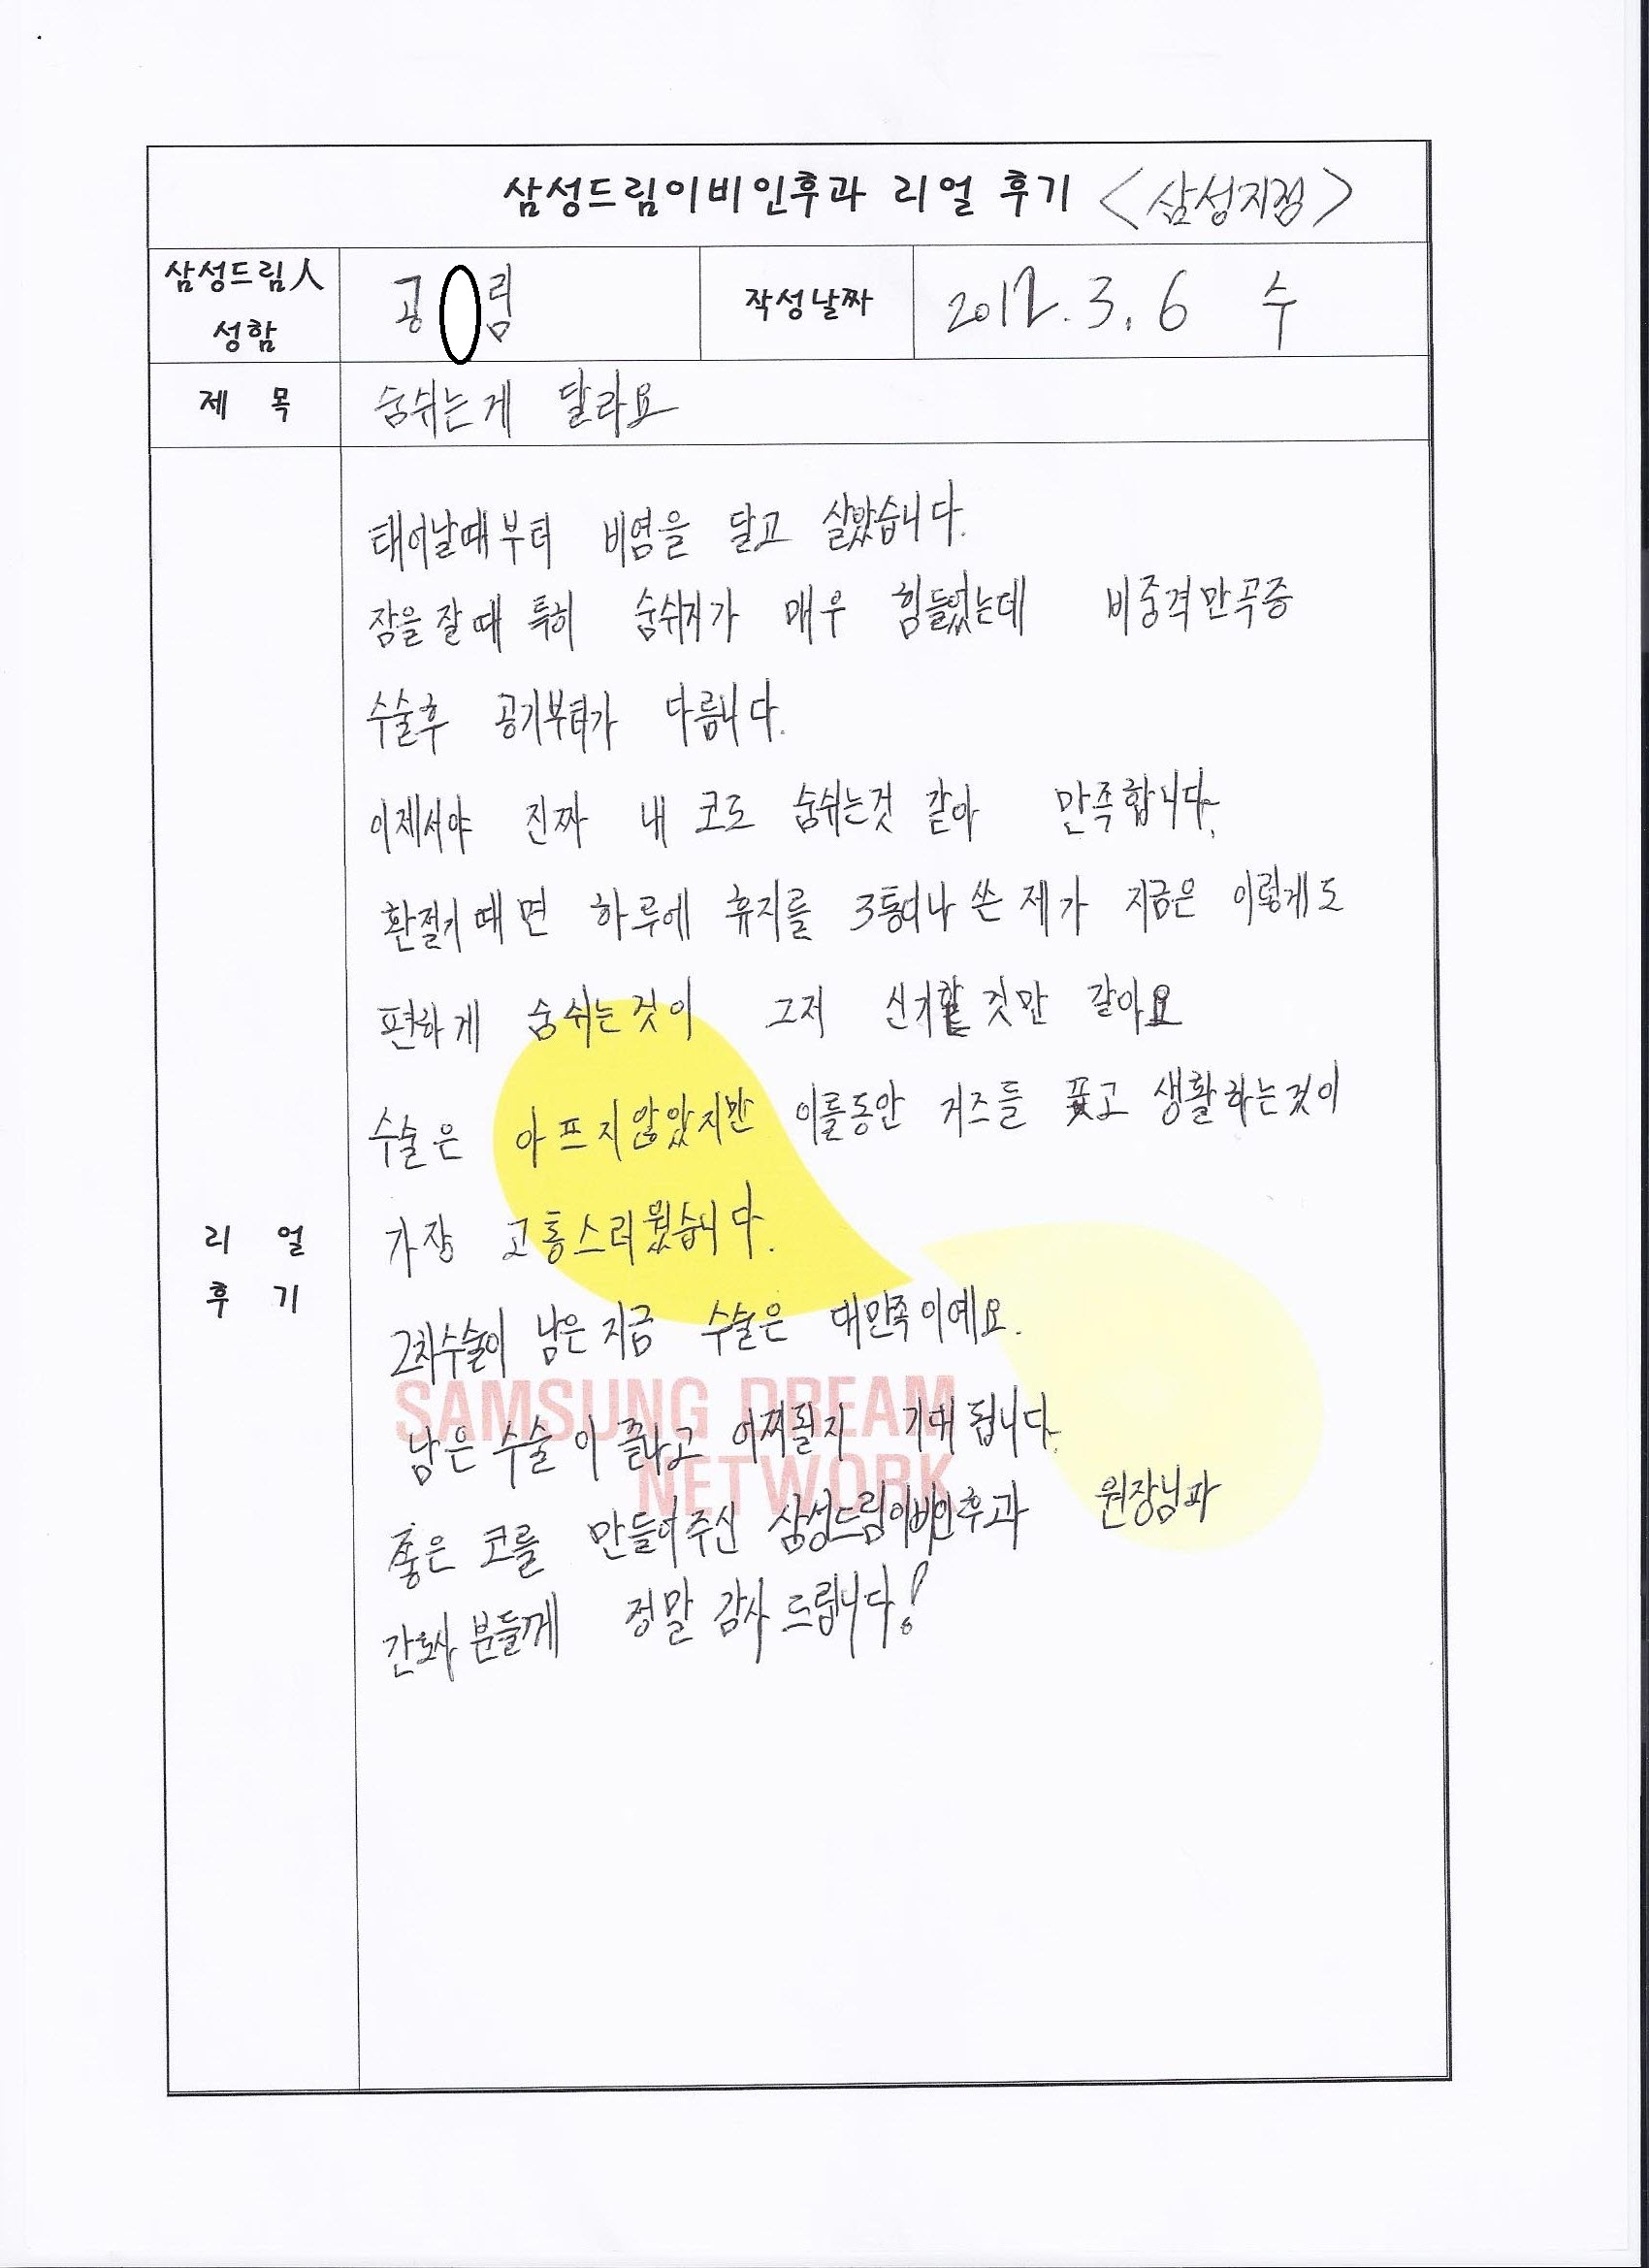 삼성드림이비인후과 리얼 후기 <삼성지점>
삼성드림人 성함 공 림 작성날짜 2012. 3. 6 수
제 목 숨쉬는게 달라요
태어날때부터 비염을 달고 살았습니다.
잠을 잘때 특히 숨쉬기가 매우 힘들었는데 비중격만곡증
수술후 공기부터가 다릅니다.
이제서야 진짜 내 코로 숨쉬는것 같아 만족합니다.
환절기때면 하루에 휴지를 3통이나 쓴 제가 지금은 이렇게도
편하게 숨쉬는것이 그저 신기할 것만 같아요
수술은 아프지않았지만 이틀동안 거즈를 꽂고 생활하는것이
가장 고통스러웠습니다.
리 얼
후 기
2차수술이 남은 지금 수술은 대만족이예요.
남은 수술이 끝나고 어찌될지 기대됩니다.
좋은 코를 만들어주신 삼성드림이비인후과 원장님과
간호사 분들께 정말 감사드립니다!
SAMSUNG DREAM
NETWORK